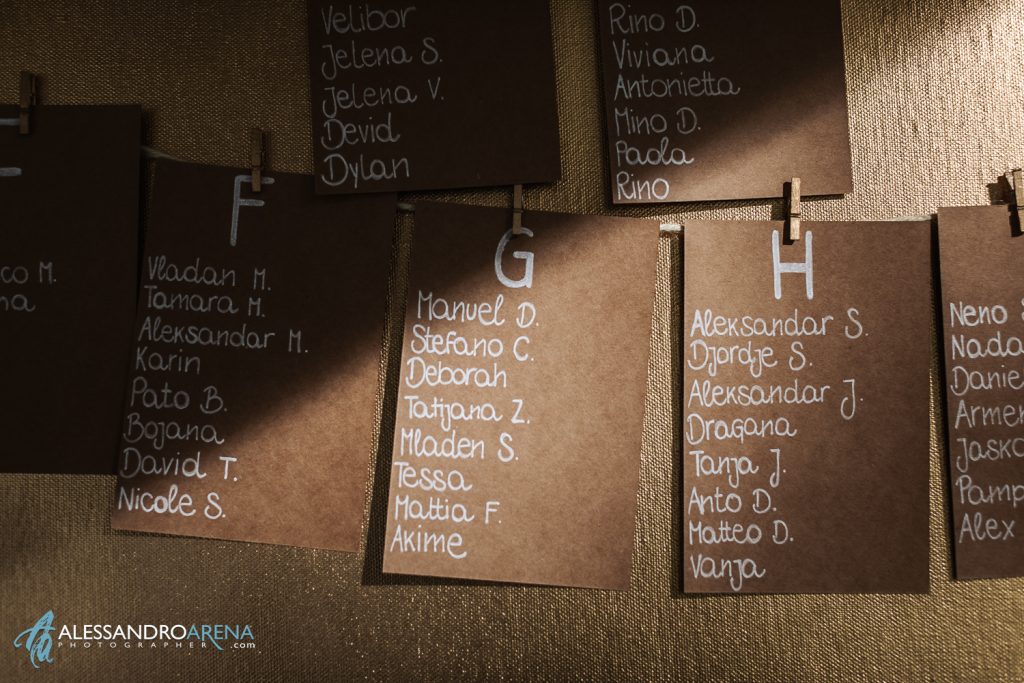 Velibor
Jelena S.
Jelena V.
Devid
Dylan
Rino D.
Viviana
Antonietta
Mino D.
Paola
Rino
co M.
na
F
Vladan M.
Tamara M.
Aleksandar M.
Karin
Pato B.
Bojana
David T.
Nicole S.
G
Manuel D.
Stefano C.
Deborah
Tatijana Z.
Mladen S.
Tessa
Mattia F.
Akime
H
Aleksandar S.
Djordje S.
Aleksandar J.
Dragana
Tanja J.
Anto D.
Matteo D.
Vanja
Neno
Nada
Danie
Armen
Jasko
Pamp
Alex
ALESSANDROARENA
PHOTOGRAPHER .com